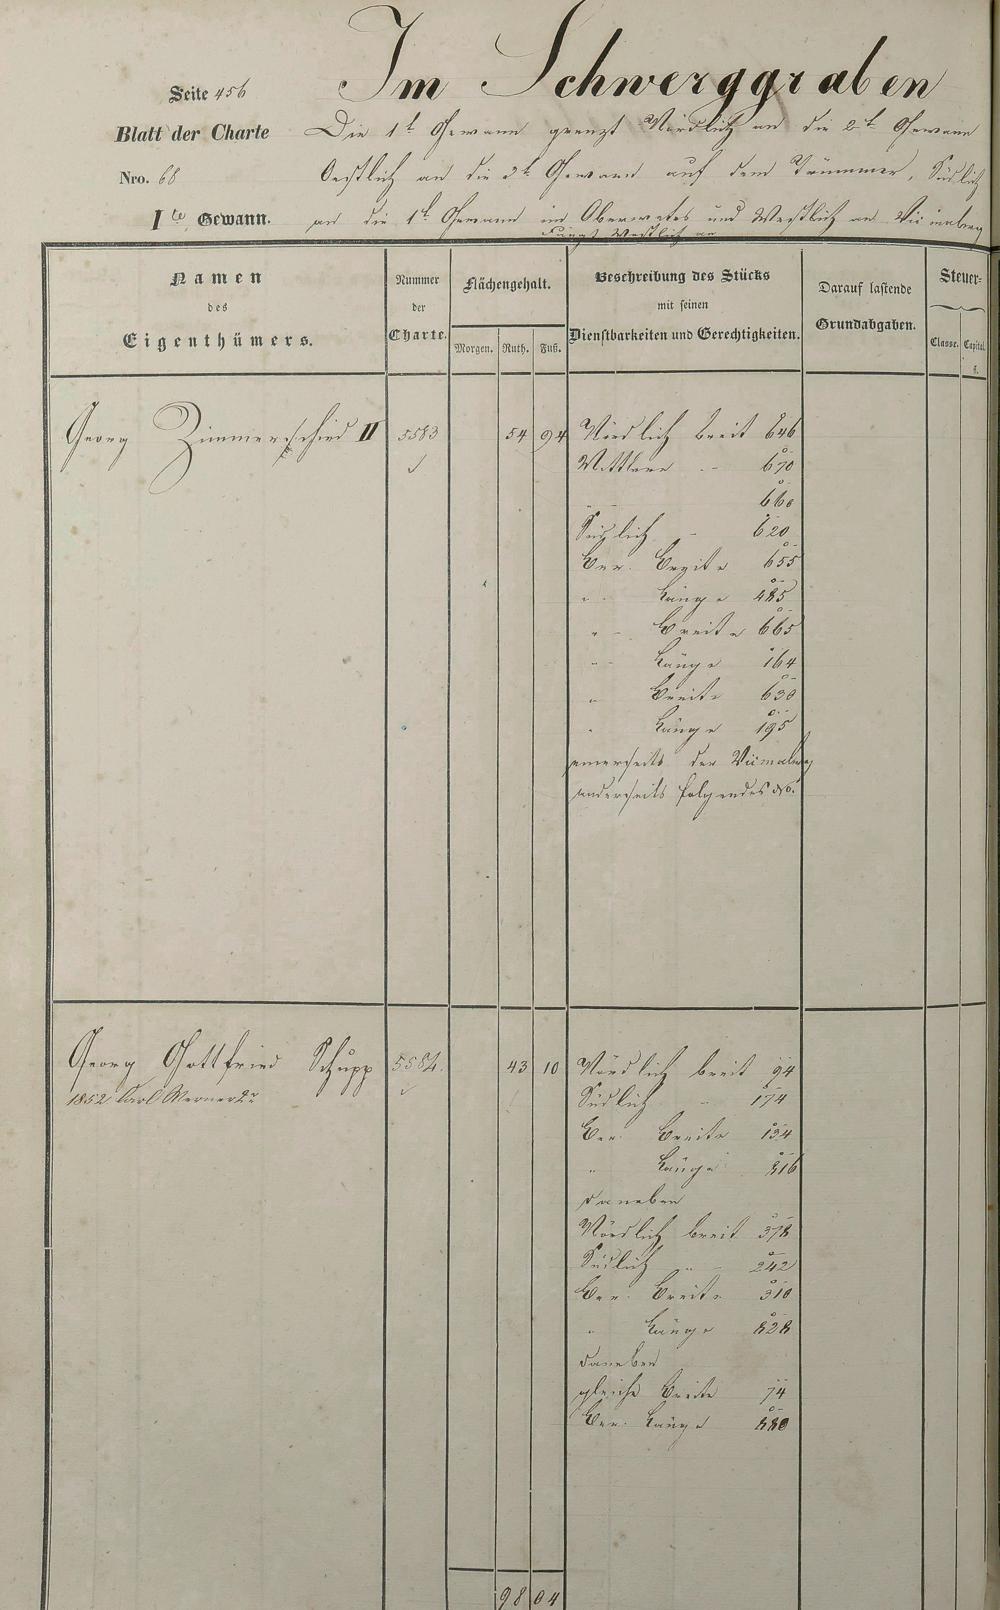 Im Schwerggraben
Seite 456
Blatt der Charte
Nro. 68
Ite Gewann.
Die 1te Gewann grenzt Nördlich an die 2te Gewann
Oestlich an die 3te Gewann auf dem Trümmer, Südlich
an die 1te Gewann im und Westlich an
Fängt Westlich an
Namen
des
Eigenthümers.
Nummer
der
Charte.
Flächengehalt.
Morgen. Ruth. Fuß.
Beschreibung des Stücks
mit seinen
Dienstbarkeiten und Gerechtigkeiten.
Darauf lastende
Grundabgaben.
Steuer-
Classe. Capital.
fl.
Georg Zimmerschied II 5583 54 94 Nördlich breit 646
Mittlere " 670
" 660
Südlich " 620
Ber. Breite 655
" Länge 485
" Breite 665
" Länge 164
" Breite 630
" Länge 195
einerseits der
anderseits folgendes
Georg Gottfried Schupp 5584. 43 10 Nördlich breit 94
1852 Carl Werner 2r
Südlich " 174
Ber. Breite 134
" Länge 816
daneben
Nördlich breit 378
Südlich " 242
Ber. Breite 310
" Länge 828
daneben
gleiche Breite 74
Ber. Länge 880
98 04